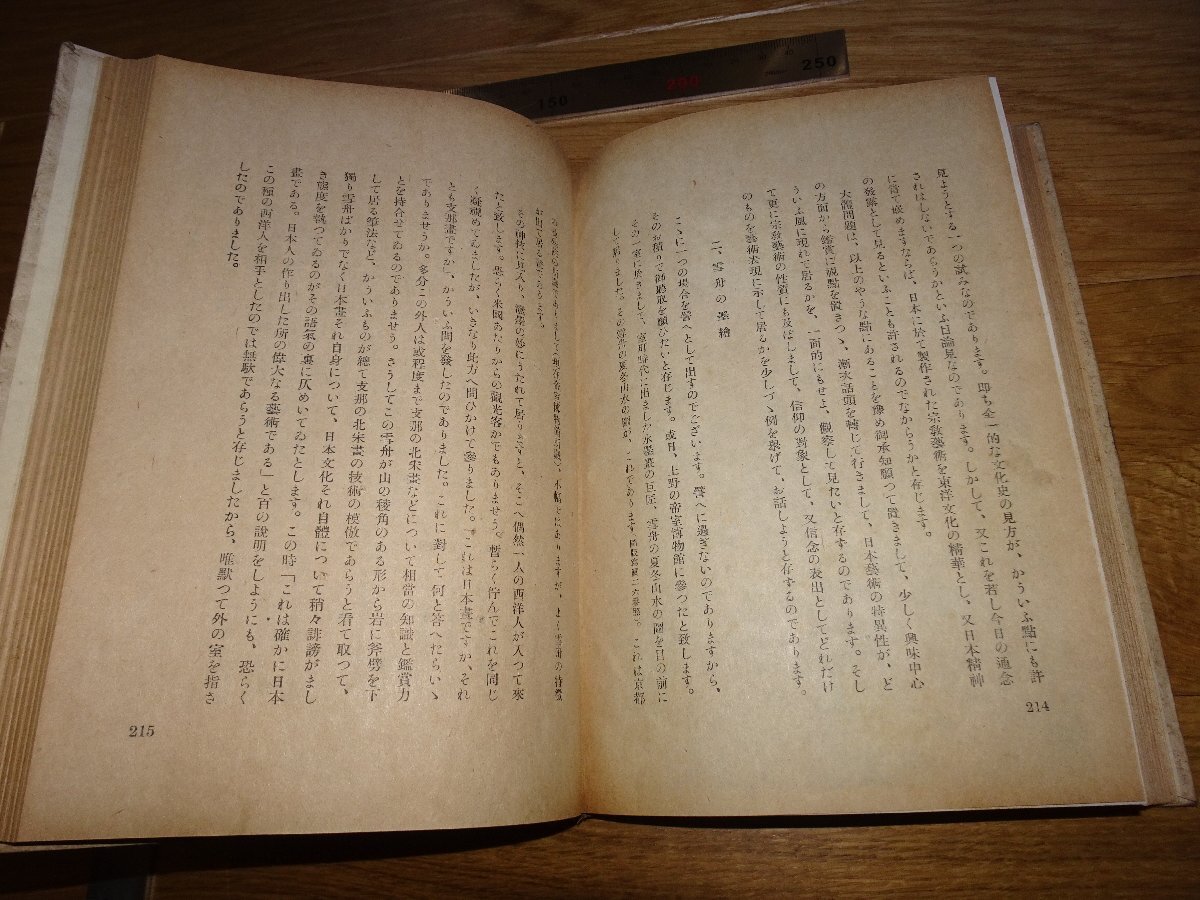 見ようとする一つの試みなのであります。即ち全一的な文化史の見方が、かういふ點にも許
されはしないであらうかといふ日論見なのであります。しかして、又これを若し今日の通念
に當て嵌めますならば、日本に於て製作された宗教藝術を東洋文化の精華とし、又日本精神
の發露として見るといふことも許されるのでなからうかと存じます。
大體問題は、以上のやうな點にあることを豫め御承知願つて置きまして、少しく興味中心
の方面から鑑賞に視點を置きつゝ、漸次話頭を轉じて行きまして、日本藝術の特異性が、ど
ういふ風に現れて居るかを、一面的にもせよ、觀察して見たいと存するのであります。そし
て更に宗教藝術の性質にも及ぼしまして、信仰の對象として、又信念の表出としてどれだけ
のものを藝術表現に示して居るかを少しづゝ例を擧げて、お話しようと存するのであります。
二、雪舟の墨繪
こゝに一つの場合を譬へとして出すのでございます。譬へに過ぎないのでありますから、
そのお積りで御聽取を願ひたいと存じます。或日、上野の帝室博物館に參つたと致します。
その一室に於きまして、室町時代に出ました水墨畫の巨匠、雪舟の夏冬山水の圖を目の前に
して居りました。その雪舟の夏冬山水の圖が、これであります。これは京都
小幅ではありますが、よく雪舟の特徴
が出て居る繪であります。
その神技に見入り、渲染の妙にうたれて居りますと、そこへ偶然一人の西洋人が入つて來
たと致します。恐らく米國あたりからの觀光客かでもありませう。暫らく佇んでこれを同じ
く凝視めてゐましたが、いきなり此方へ問ひかけて參りました。「これは日本畫ですか、それ
とも支那畫ですか」、かういふ問を發したのでありました。これに對して何と答へたらいゝ
でありませうか。多分この外人は或程度まで支那の北宋畫などについて相當の知識と鑑賞力
とを持合せてゐるのでありませう。さうしてこの雪舟が山の稜角のある形から岩に斧劈を下
して居る筆法など、かういふものが總て支那の北宋畫の技術の模倣であらうと看て取つて、
獨り雪舟ばかりでなく日本畫それ自身について、日本文化それ自體について稍々誹謗がまし
き態度を執つてゐるのがその語氣の裏に仄めいてゐたとします。この時「これは確かに日本
畫である。日本人の作り出した所の偉大なる藝術である」と百の說明をしようにも、恐らく
この種の西洋人を相手としたのでは無駄であらうと存じましたから、唯默つて外の室を指さ
したのでありました。
214
215
150
200
250